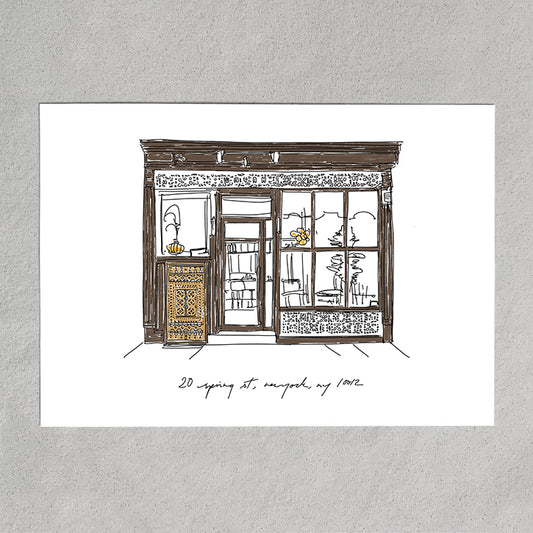 20 spring st, new york, ny 10012